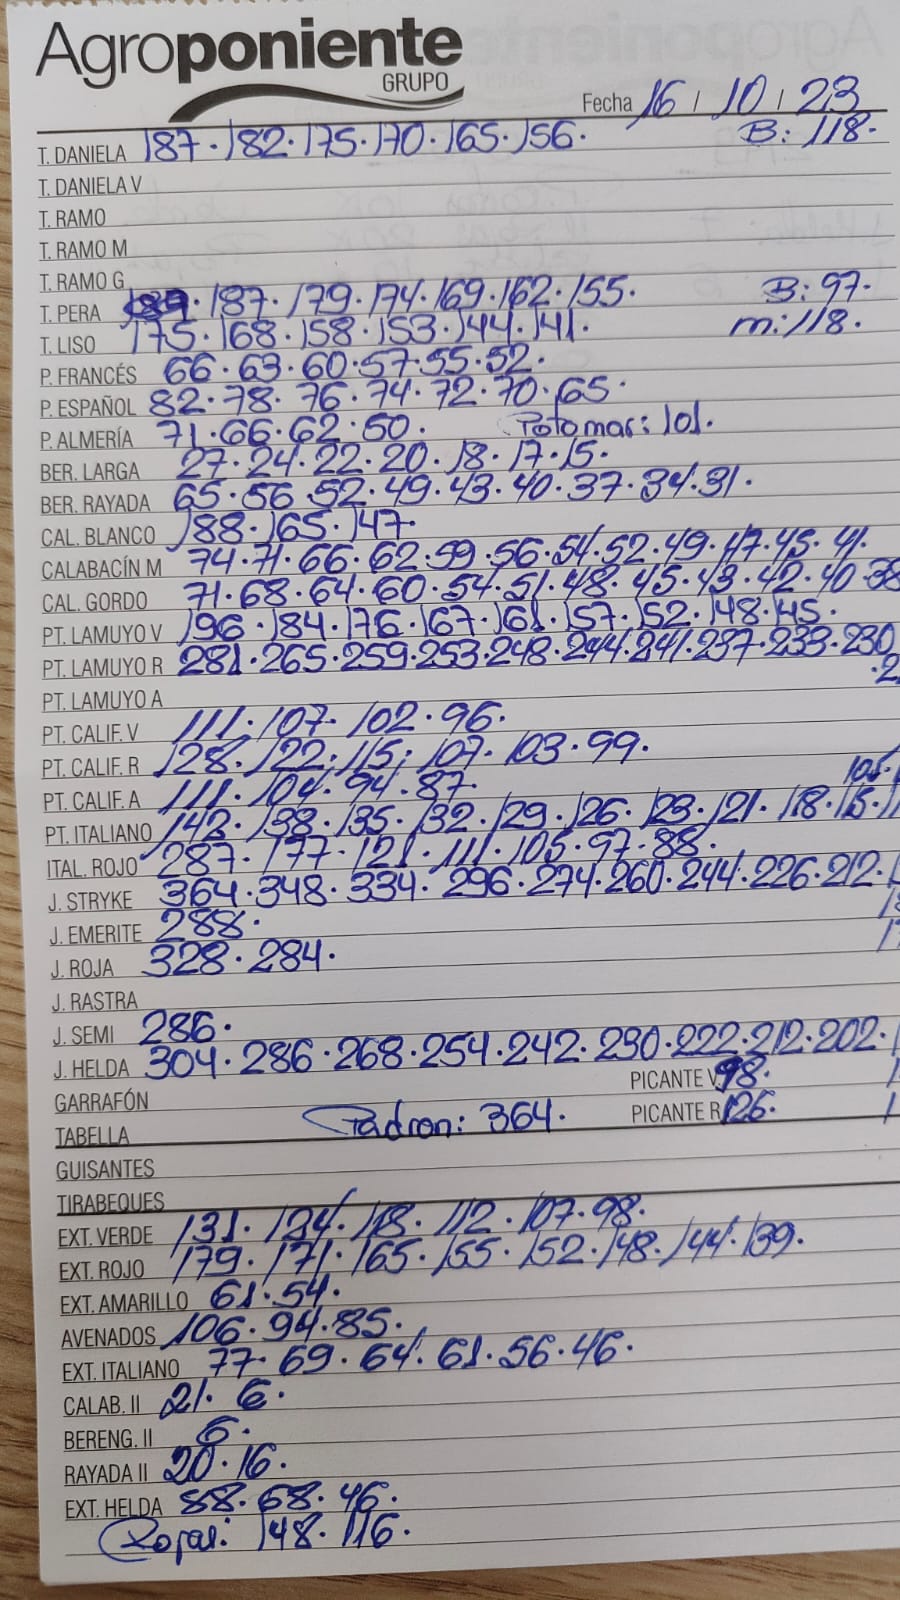 Agroponiente
GRUPO
Fecha 16 / 10 / 23
T. DANELA 187 · 182 · 175 · 170 · 165 · 156 · B: 118 ·
T. DANIELA V
T. RAMO
T. RAMO M
T. RAMO G
T. PERA 187 · 179 · 174 · 169 · 162 · 155 · B: 97 ·
T. LISO 175 · 168 · 158 · 153 · 144 · 141 · m: 118 ·
P. FRANCÉS 66 · 63 · 60 · 57 · 55 · 52 ·
P. ESPAÑOL 82 · 78 · 76 · 74 · 72 · 70 · 65 ·
P. ALMERÍA 71 · 66 · 62 · 50 · Potomac: 101 ·
BER. LARGA 27 · 24 · 22 · 20 · 18 · 17 · 15 ·
BER. RAYADA 65 · 56 · 52 · 49 · 43 · 40 · 37 · 34 · 31 ·
CAL. BLANCO 188 · 165 · 147 ·
CALABACÍN M 74 · 71 · 66 · 62 · 59 · 56 · 54 · 52 · 49 · 47 · 45 · 41 ·
CAL. GORDO 71 · 68 · 64 · 60 · 54 · 51 · 48 · 45 · 43 · 42 · 40 · 38
PT. LAMUYO V 196 · 184 · 176 · 167 · 161 · 157 · 152 · 148 · 145 ·
PT. LAMUYO R 281 · 265 · 259 · 253 · 248 · 244 · 241 · 237 · 233 · 230
PT. LAMUYO A
PT. CALIF. V 111 · 107 · 102 · 96 ·
PT. CALIF. R 128 · 122 · 115 · 107 · 103 · 99 ·
PT. CALIF. A 111 · 104 · 94 · 87 · 105
PT. ITALIANO 142 · 138 · 135 · 132 · 129 · 126 · 123 · 121 · 118 · 115 ·
ITAL. ROJO 287 · 177 · 121 · 111 · 105 · 97 · 88 ·
J. STRYKE 364 · 348 · 334 · 296 · 274 · 260 · 244 · 226 · 212 ·
J. EMERITE 288 ·
J. ROJA 328 · 284 ·
J. RASTRA
J. SEMI 286 ·
J. HELDA 304 · 286 · 268 · 254 · 242 · 230 · 222 · 212 · 202 ·
GARRAFÓN PICANTE V 98 ·
TABELLA Padron: 364 · PICANTE R 126 ·
GUISANTES
TIRABEQUES
EXT. VERDE 131 · 124 · 118 · 112 · 107 · 98 ·
EXT. ROJO 179 · 171 · 165 · 155 · 152 · 148 · 144 · 139 ·
EXT. AMARILLO 61 · 54 ·
AVENADOS 106 · 94 · 85 ·
EXT. ITALIANO 77 · 69 · 64 · 61 · 56 · 46 ·
CALAB. II 21 · 6 ·
BERENG. II 6 ·
RAYADA II 20 · 16 ·
EXT. HELDA 88 · 68 · 46 ·
Rojas: 148 · 116 ·